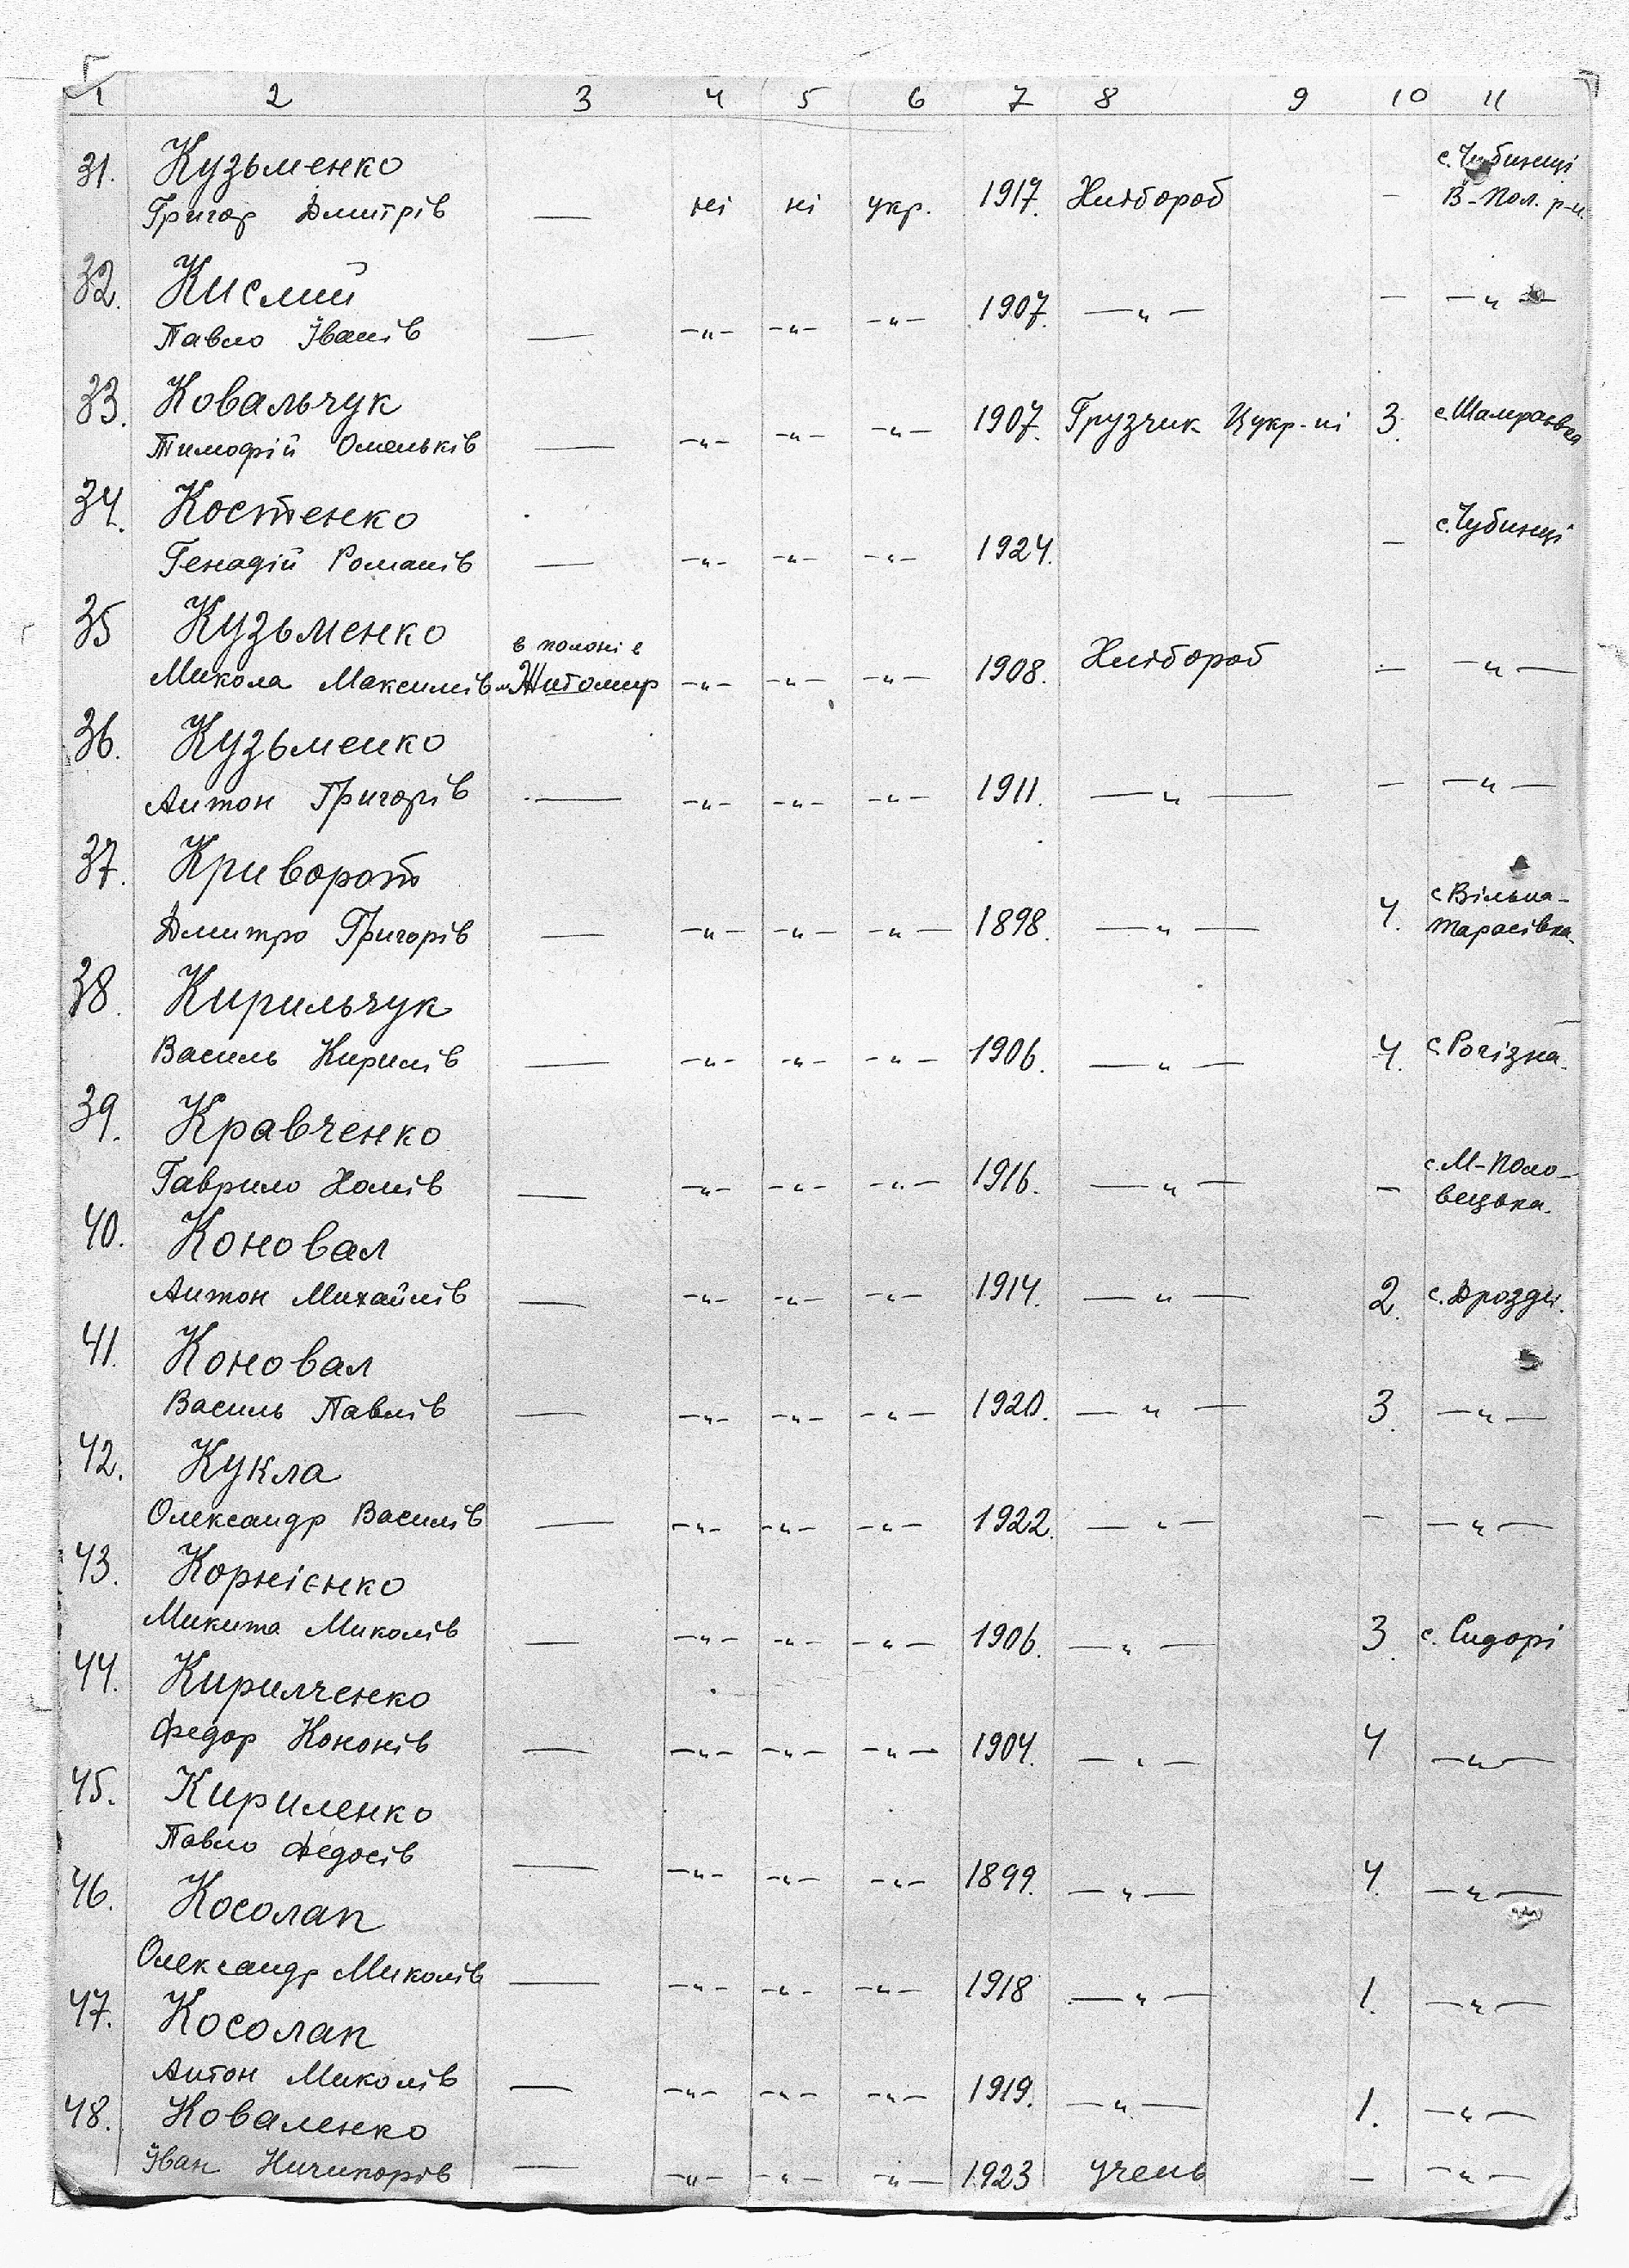 1 2 3 4 5 6 7 8 9 10 11
31. Кузьменко с. Чубинці
Григор Дмитрів — ні ні укр. 1917. Хлібороб - В-Пол. р-н.
32. Кислий
Павло Іванів — -"- -"- -"- 1907. -"- - -"-
33. Ковальчук
Тимофій Омельків — -"- -"- -"- 1907. Грузчик Цукр-ні 3. с. Шамраєвка
34. Костенко с. Чубинці
Генадій Романів — -"- -"- -"- 1924. -
35 Кузьменко в полоні в
Микола Максимів м. Житомир -"- -"- -"- 1908. Хлібороб - -"-
36. Кузьменко
Антон Григорів — -"- -"- -"- 1911. -"- - -"-
37. Криворот с. Вільна-
Дмитро Григорів — -"- -"- -"- 1898. -"- 4. Тарасівка.
38. Кирильчук
Василь Кирилів — -"- -"- -"- 1906. -"- 4. с. Рогізна.
39. Кравченко с. М-Поло-
Гаврило Хомів — -"- -"- -"- 1916. -"- - вецька.
40. Коновал
Антон Михайлів — -"- -"- -"- 1914. -"- 2. с. Дрозди.
41. Коновал
Василь Павлів — -"- -"- -"- 1920. -"- 3. -"-
42. Кукла
Олександр Василів — -"- -"- -"- 1922. -"- - -"-
43. Корнієнко
Микита Миколів — -"- -"- -"- 1906. -"- 3. с. Сидорі
44. Кирилченко
Федор Кононів — -"- -"- -"- 1904. -"- 4 -"-
45. Кириленко
Павло Федосів — -"- -"- -"- 1899. -"- 4. -"-
46. Косолап
Олександр Миколів — -"- -"- -"- 1918 -"- 1. -"-
47. Косолап
Антон Миколів — -"- -"- -"- 1919. -"- 1. -"-
48. Коваленко
Іван Ничипорів — -"- -"- -"- 1923 учень - -"-